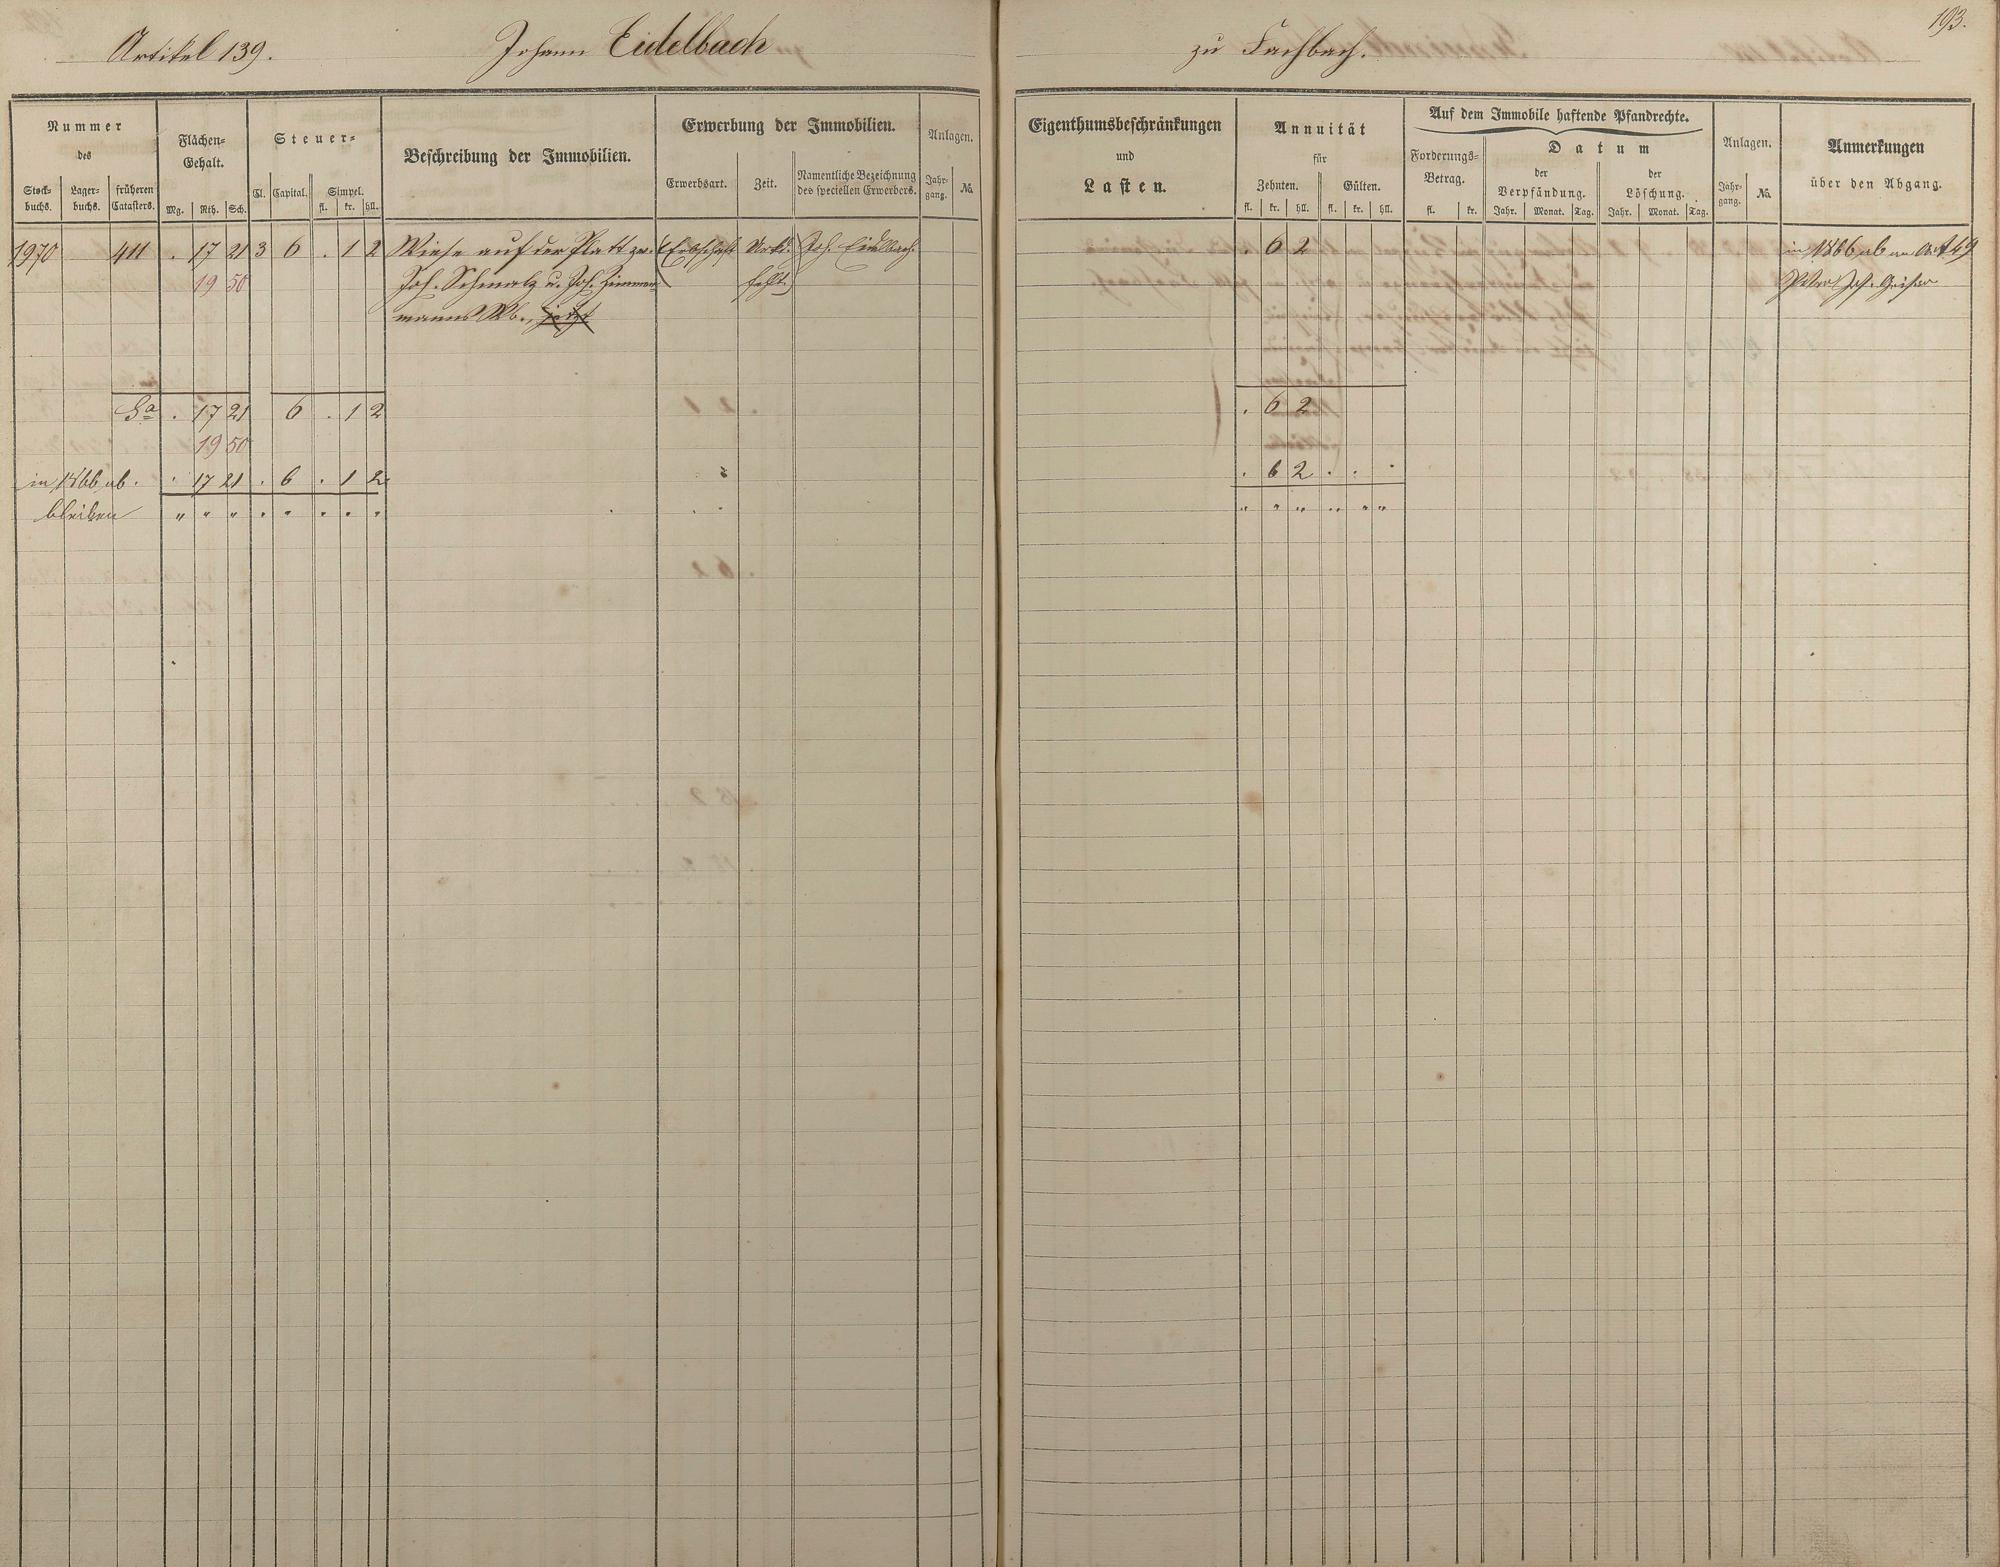 193.
Artikel 139. Johann Eidelbach zu Fachbach.
Nummer
des
Stock-
buchs.
Lager-
buchs.
früheren
Catasters.
Flächen-
Gehalt.
Mg. Rth. Sch.
Steuer-
Cl. Capital. Simpel.
fl. kr. hll.
Beschreibung der Immobilien.
Erwerbung der Immobilien.
Erwerbsart. Zeit. Namentliche Bezeichnung
des speciellen Erwerbers.
Anlagen.
Jahr-
gang.
No.
Eigenthumsbeschränkungen
und
Lasten.
Annuität
für
Zehnten. Gülten.
fl. kr. hll. fl. kr. hll.
Auf dem Immobile haftende Pfandrechte.
Forderungs-
Betrag.
fl. kr.
Datum
der
Verpfändung.
Jahr. Monat. Tag.
der
Löschung.
Jahr. Monat. Tag.
Anlagen.
Jahr-
gang.
No.
Anmerkungen
über den Abgang.
1970 411 . 17 21 3 6 . 1 2 Wiese auf der Platt zw. (Erbschaft Urkd. Joh. Eidelbach. . 6 2 in 1866 ab an Art 49
19 50 Joh. Schmalz u. Joh. Zimmer- fehlt.) Peter Jos.
manns Wb., jetzt
Sa . 17 21 6 . 1 2 . 6 2
19 50
in 1866 ab . . 17 21 . 6 . 1 2 . 6 2 . . .
bleiben " " " . " . . . " " " .. .. " "